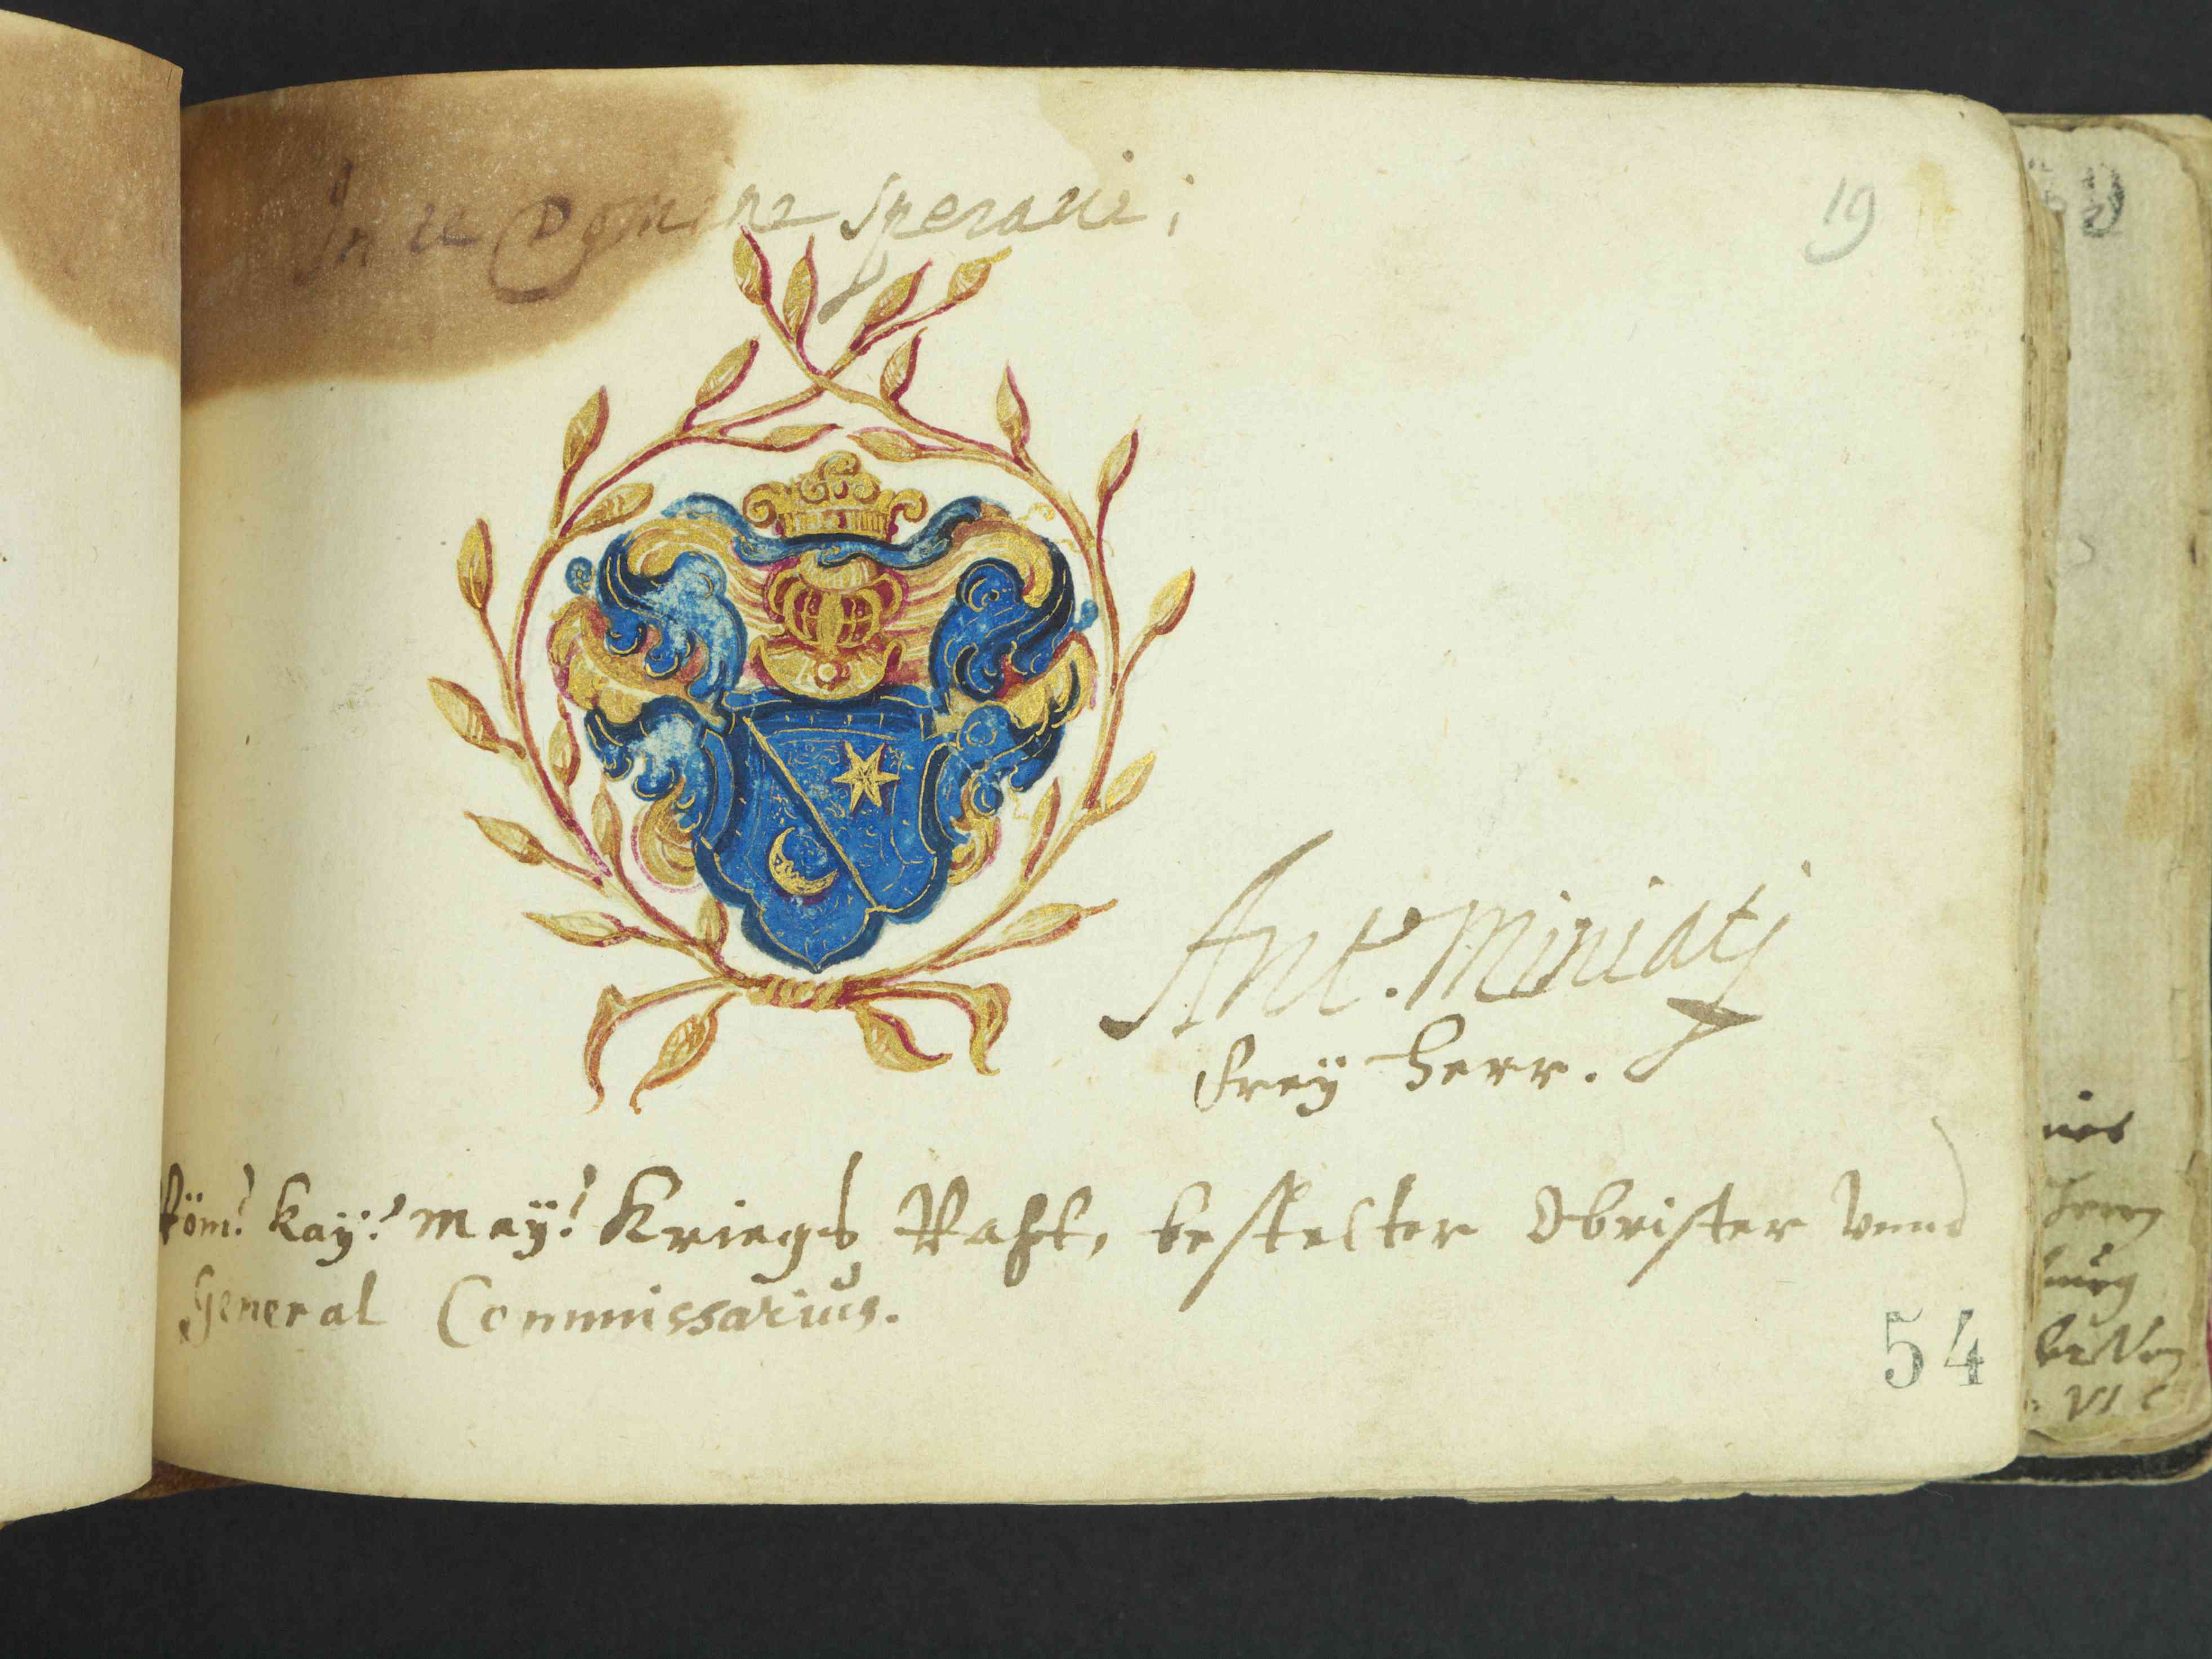 In te Domine speravi;
19
Ant.º Miniatj
Freÿ Herr.
Röm: Kaÿ: Maÿ: Kriegs Raht, bestelter Obrister vnnd
General Commissarius.
54